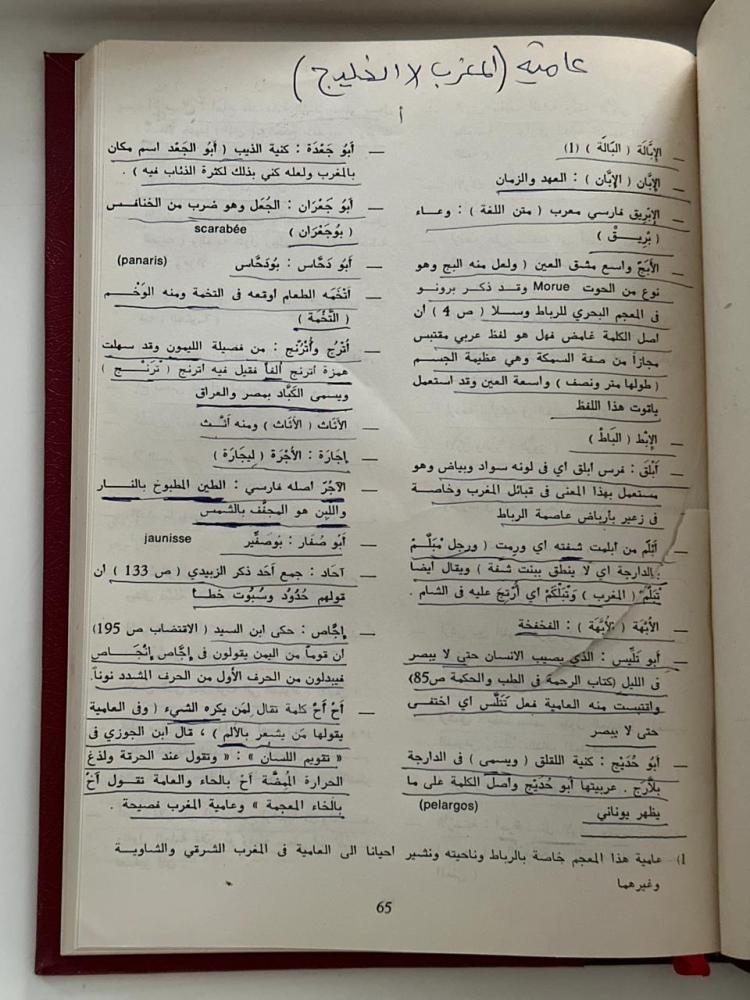 عامية (المغرب لا الخليج)
أ
ـ الإبَّالَة ( البَالَة ) (1)
ـ الإبَّان ( الإبَّان ) : العهد والزمان
ـ الإبْرِيق فارسي معرب ( متن اللغة ) : وعـاء
( بْرِيـق )
ـ الأَبَجّ واسع مشق العين ( ولعل منه البج وهو
نوع من الحوت Morue وقد ذكر برونو
فى المعجم البحري للرباط وسلا ( ص 4 ) أن
اصل الكلمة غامض فهل هو لفظ عربي مقتبس
مجازاً من صفة السمكة وهي عظيمة الجسم
( طولها متر ونصف ) واسعة العين وقد استعمل
ياقوت هذا اللفظ
ـ الإبْط ( البَاطْ )
ـ أَبْلَق : فرس ابلق اي فى لونه سواد وبياض وهو
مستعمل بهذا المعنى فى قبائل المغرب وخاصـة
فى زعير بأرباض عاصمة الرباط
ـ أَبْلَم من أبلمت شفته اي ورمت ( ورجل مْبَلَّـمْ
بالدارجة اي لا ينطق ببنت شفة ) ويقال أيضا
تْبَلَّمْ ( المغرب ) وَتْبَلْكَمْ اي أُرْتِجَ عليه فى الشام .
ـ الأبْهَة ( لأُبَّهَة ) : الفخفخة
ـ أبو تَلِّيس : الذي يصيب الانسان حتى لا يبصر
فى الليل (كتاب الرحمة فى الطب والحكمة ص85)
واقتبست منه العامية فعل تَتَلَّس اي اختفـى
حتى لا يبصر
ـ أبو حُدَيْج : كنية اللقلق ( ويسمى ) فى الدارجة
بلاَّرَج . عربيتها أبو حُدَيْج وأصل الكلمة على ما
يظهر يوناني (pelargos)
ـ أبُو جَعْدَة : كنية الذيب ( أبو الجَعْد اسم مكان
بالمغرب ولعله كني بذلك لكثرة الذئاب فيه ) .
ـ أبو جَعْرَان : الجُعَل وهو ضرب من الخنافـس
( بُوجَعْرَان ) scarabée
ـ أبُو دَحَّاس : بُودَحَّاس (panaris)
ـ أَتْخَمَه الطعام أوقعه فى التخمة ومنه الوَخْـم
( التُّخْمَة )
ـ أُتْرُج وأُتْرُنْج : من فصيلة الليمون وقد سهلت
همزة اترنج ألفاً فقيل فيه اترنج ( تْرَنْـــج )
ويسمى الكَبَّاد بمصر والعراق
ـ الأثَاث ( الأثَاث ) ومنه أَثَّـث
ـ إجَارَة : الأُجْرَة ( لِيجَارَة )
ـ الآجُرّ اصله فارسي : الطين المطبوخ بالنـــار
واللَّبِن هو المجفَّف بالشمس
ـ أبُو صُفَار : بُوصَفِّير jaunisse
ـ آحَاد : جمع أَحَد ذكر الزبيدي ( ص 133 ) ان
قولهم حُدُودٌ وسُبُوت خطـأ
ـ إجَّاص : حكى ابن السيد ( الاقتضاب ص 195)
ان قوماً من اليمن يقولون فى إجَّاص إنْجَـــاص
فيبدلون من الحرف الأول من الحرف المشدد نوناً.
ـ أَحْ أَحْ كلمة تقال لمَن يكره الشيء ( وفى العامية
يقولها مَن يشعر بالألم ) ، قال ابن الجوزي فى
« تقويم اللسان » : « وتقول عند الحرقة ولذع
الحرارة المُمِضَّة أَحّ بالحاء والعامة تقـول أَخْ
بالخاء المعجمة » وعامية المغرب فصيحة .
1) عامية هذا المعجم خاصة بالرباط وناحيته ونشير احيانا الى العامية فى المغرب الشرقي والشاويـة
وغيرهما
65